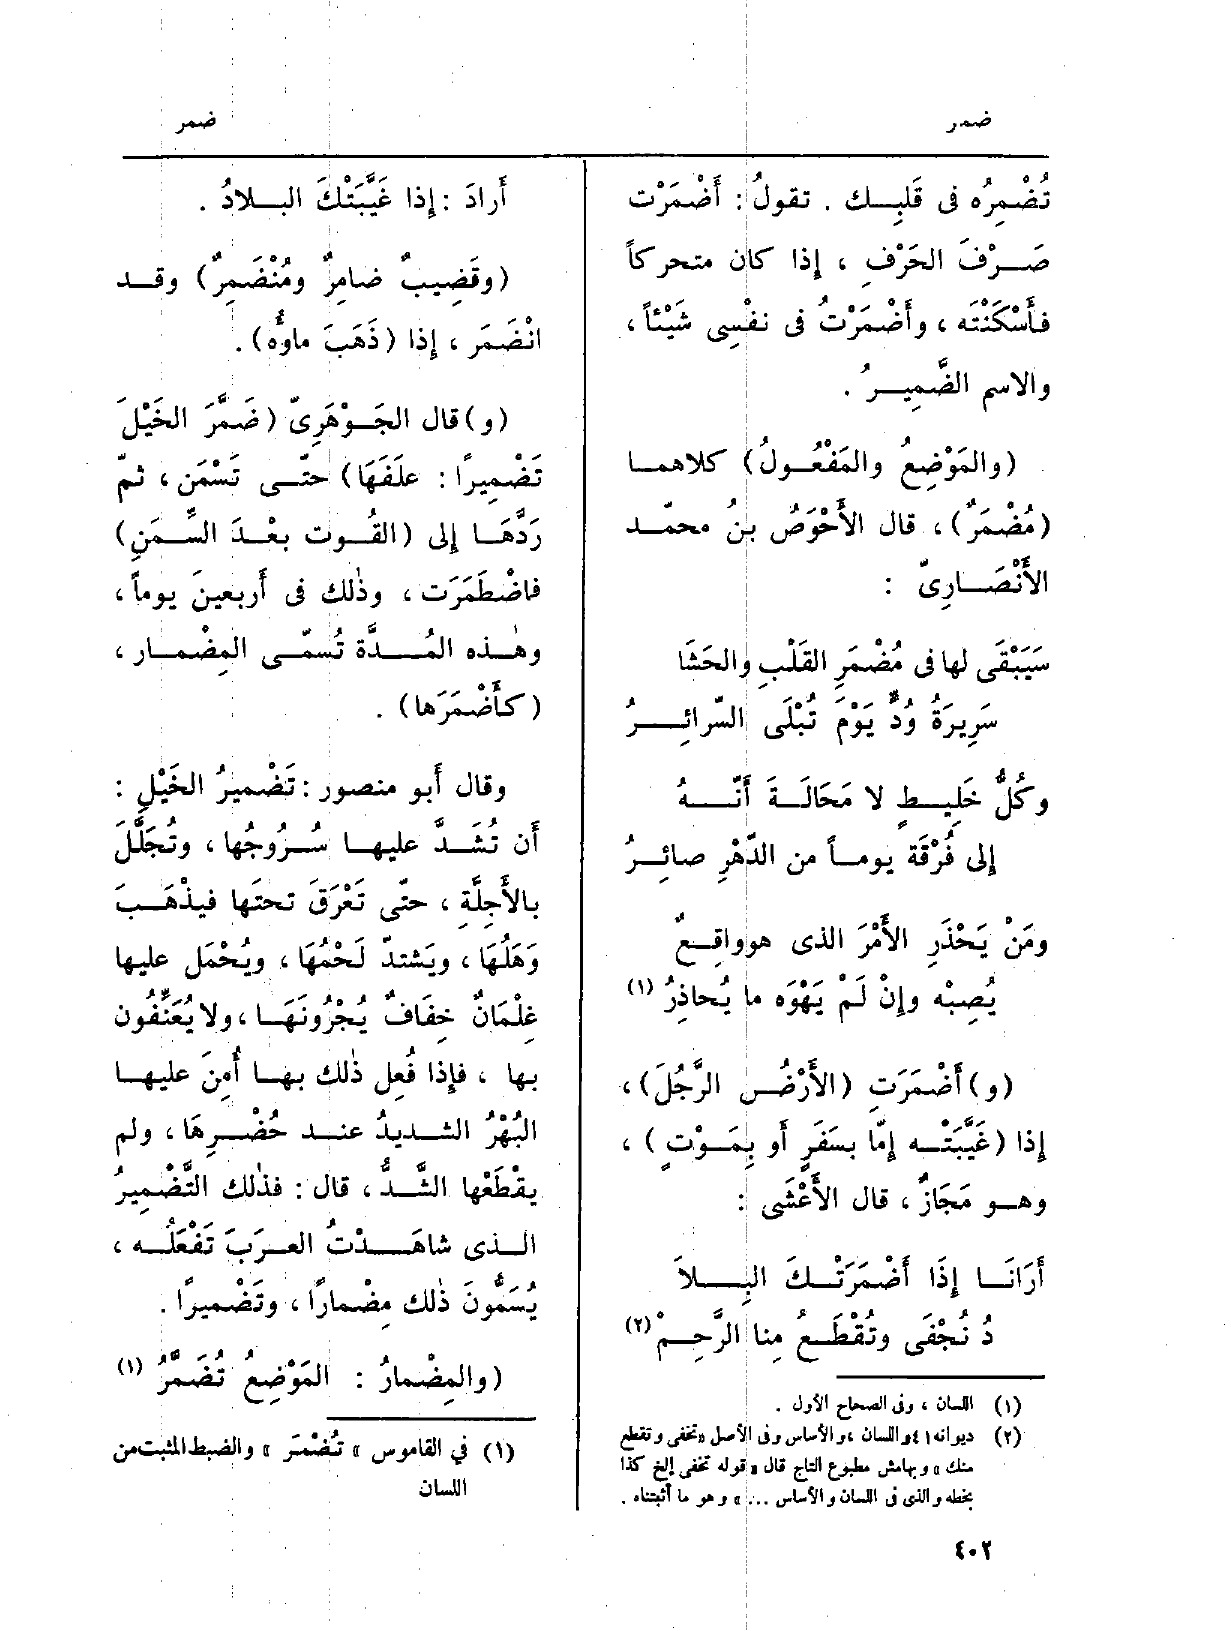 ضمر
ضمر
تُضْمِرُه فى قَلبِك . تقولُ : أَضْمَرْت
صَرْفَ الحَرْفِ ، إذا كان متحركاً
فأَسْكَنْتَه ، وأَضْمَرْتُ فى نفْسِى شَيْئاً ،
والاسم الضَّمِيرُ .
(والمَوْضِعُ والمَفْعُولُ) كلاهما
(مُضْمَرٌ) ، قال الأَحْوَصُ بنُ محمّد
الأَنْصَارِىّ :
سَيَبْقَى لها فى مُضْمَرِ القَلْبِ والحَشَا
سَرِيرَةُ وُدٍّ يَوْمَ تُبْلَى السّرائِرُ
وكُلُّ خَلِيطٍ لا مَحَالَةَ أَنَّهُ
إلى فُرْقَة يوماً من الدَّهْرِ صائِرُ
ومَنْ يَحْذَرِ الأَمْرَ الذى هو واقِعٌ
يُصِبْه وإنْ لَمْ يَهْوَه ما يُحاذِرُ (١)
(و) أَضْمَرَت (الأَرْضُ الرَّجُلَ) ،
إذا (غَيَّبَتْه إمّا بسَفَرٍ أو بِمَوْتٍ) ،
وهو مَجَازٌ ، قال الأَعْشَى :
أَرَانَا إذَا أَضْمَرَتْكَ البِلاَ
دُ نُجْفَى وتُقْطَعُ مِنا الرَّحِمْ (٢)
(١) اللسان ، وفى الصحاح الأول .
(٢) ديوانه ٤١ واللسان ، والأساس وفى الأصل «تخفى وتقطع
منك» وبهامش مطبوع التاج قال «قوله تخفى إلخ كذا
بخطه والذى فى اللسان والأساس ...» وهو ما أثبتناه .
أَرادَ : إذا غَيَّبَتْكَ البلادُ .
(وقَضِيبٌ ضامِرٌ ومُنْضَمِرٌ) وقد
انْضَمَر ، إذا (ذَهَبَ ماؤُه) .
(و) قال الجَوْهَرِىّ (ضَمَّرَ الخَيْلَ
تَضْمِيرًا : علَفَهَا) حتّى تَسْمَن ، ثمّ
رَدَّهَا إلى (القُوت بعْدَ السِّمَنِ)
فاضْطَمَرَت ، وذٰلك فى أَربعينَ يوماً ،
وهٰذه المُدَّة تُسمّى المِضْمار ،
(كأَضْمَرَها) .
وقال أَبو منصور : تَضْمِيرُ الخَيْلِ :
أَن تُشَدَّ عليها سُرُوجُها ، وتُجَلَّلَ
بالأَجِلَّةِ ، حتّى تَعْرَقَ تحتَها فيذْهَبَ
رَهَلُهَا ، ويَشتدّ لَحْمُهَا ، ويُحْمَل عليها
غِلْمَانٌ خِفَافٌ يُجْرُونَهَا ، ولا يُعَنِّفُون
بها ، فإذا فُعِل ذٰلك بها أُمِنَ عليها
البُهْرُ الشديدُ عند حُضْرِهَا ، ولم
يقْطَعْها الشَّدُّ ، قال : فذٰلك التَّضْمِيرُ
الذى شاهَدْتُ العرَبَ تَفْعَلُه ،
يُسَمُّونَ ذٰلك مِضْمارًا ، وتَضْمِيرًا .
(والمِضْمارُ : المَوْضِعُ تُضَمَّرُ (١)
(١) في القاموس «تُضْمَر» والضبط المثبت من
اللسان
٤٠٢